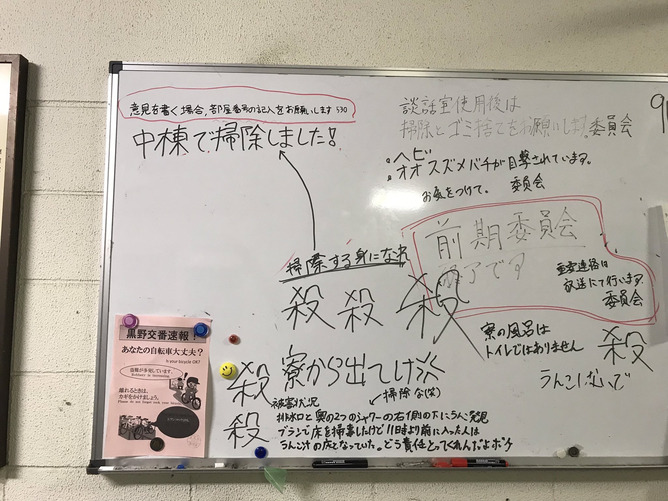 意見を書く場合、部屋番号の記入をお願いします 530
中棟で掃除しました!
談話室使用後は
掃除とゴミ捨てをお願いします。委員会
・ヘビ
・オオスズメバチが目撃されています。
お気をつけて。 委員会
前期委員会
終了です
重要連絡は
放送にて行います。
委員会
掃除する身になれ
殺 殺 殺
寮の風呂は
トイレではありません
殺
うんこしないで
殺 寮から出てけ
殺
掃除な(笑)
被害状況
排水口と奥の2つのシャワーの右側の下にうんこ発見
ブラシで床を掃毒したけど11日時より前に入った人は
うんこ汁の床となっていた。どう責任とってくれんだよボケ
黒野交番速報!
あなたの自転車大丈夫?
Is your bicycle OK?
自転車が多発しています。
離れるときは、
カギをかけましょう。